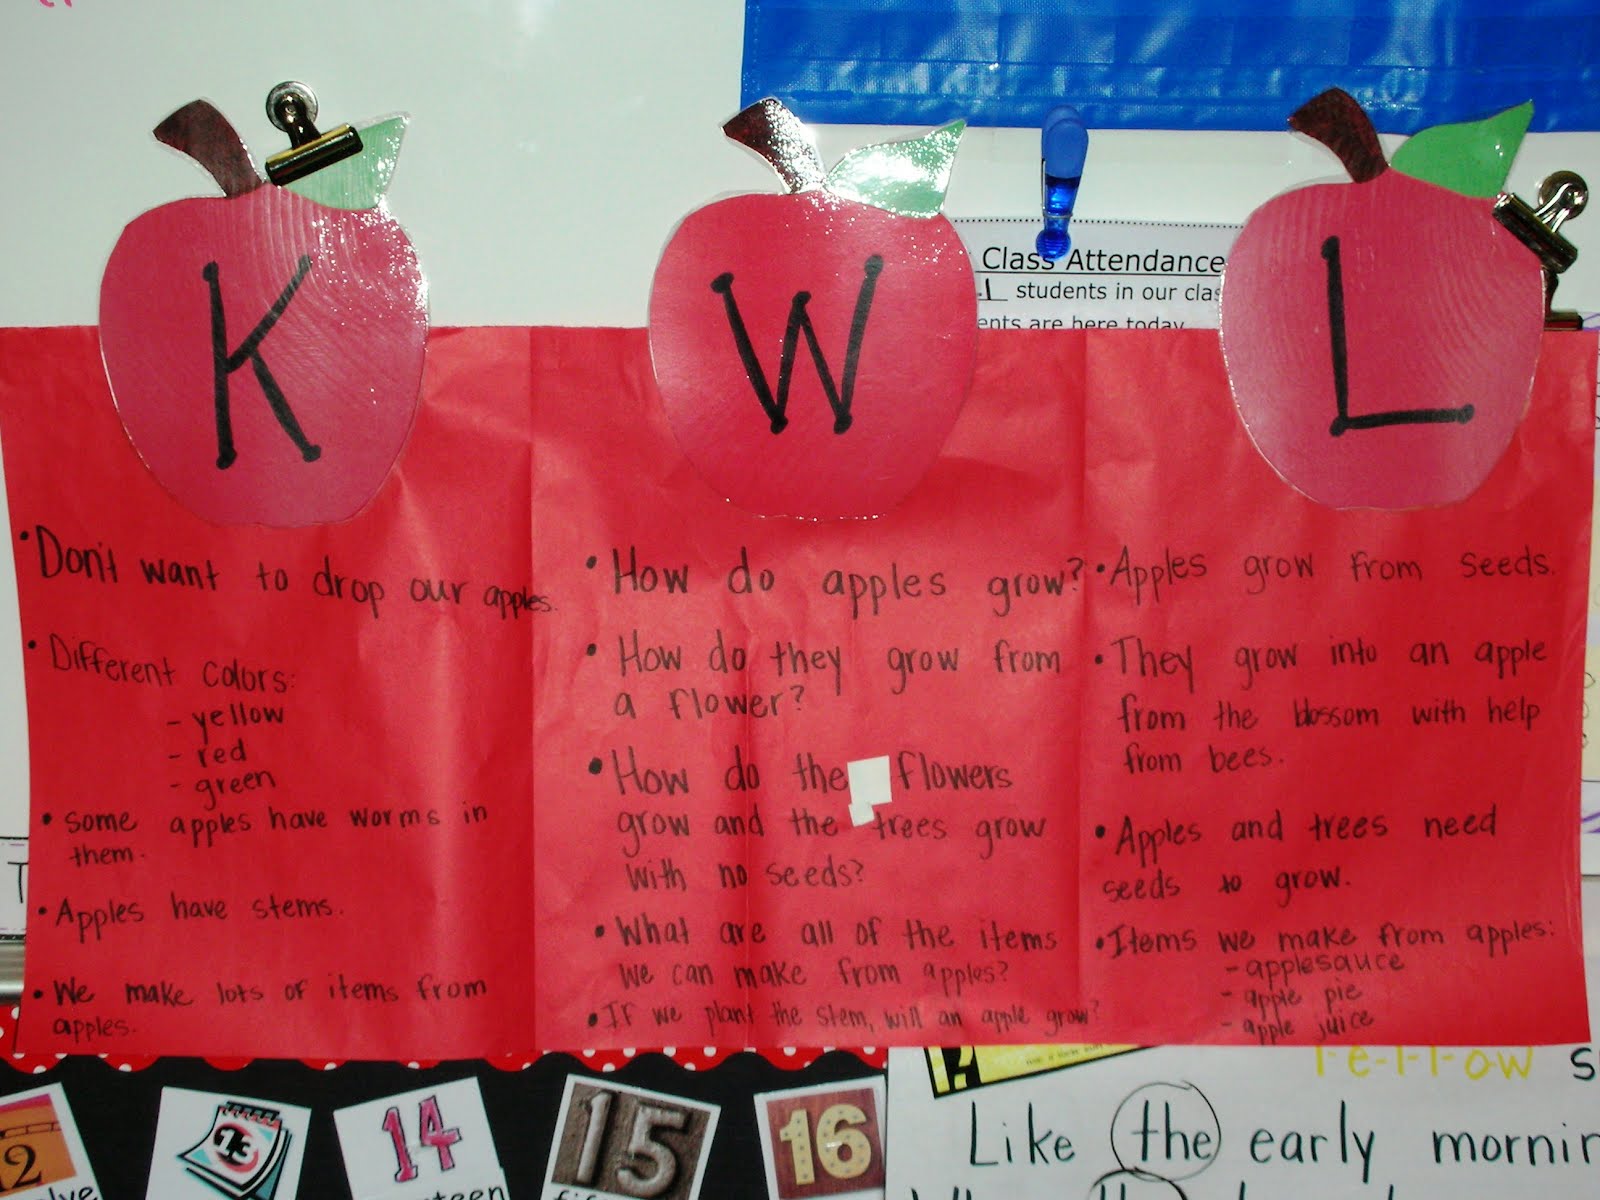 K
W
L
Class Attendance
students in our clas
ents are here today
• Don't want to drop our apples.
• Different colors:
- yellow
- red
- green
• Some apples have worms in
them.
• Apples have stems.
• We make lots of items from
apples.
• How do apples grow?
• How do they grow from
a flower?
• How do the flowers
grow and the trees grow
with no seeds?
• What are all of the items
we can make from apples?
• If we plant the stem, will an apple grow?
• Apples grow from seeds.
• They grow into an apple
from the blossom with help
from bees.
• Apples and trees need
seeds to grow.
• Items we make from apples:
- applesauce
- apple pie
- apple juice
T
2
13
14
15
16
l-e-l-l-ow s
Like the early mornin